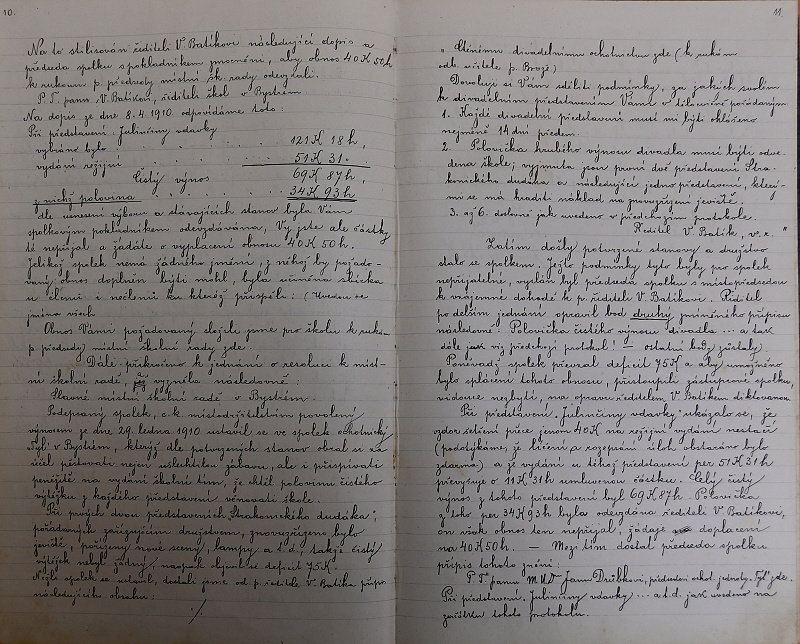 10.
Na to stilisován řediteli V. Batíkovi následující dopis a
předseda spolku s pokladníkem zmocněni, aby obnos 40 K 50 h
k rukoum p. předsedy místní šk. rady odevzdali.
P. T. panu V. Batíkovi, řediteli škol v Bystrém
Na dopis ze dne 8. 4. 1910. odpovídáme toto:
Při představení "Julinčiny vdavky
vybráno bylo . . . . . 121 K 18 h,
vydání režijní . . . . . 51 K 31 "
Čistý výnos 69 K 87 h,
z nichž polovina . . . . 34 K 93 h
dle usnesení výboru a stávajících stanov byla Vám
spolkovým pokladníkem odevzdávána, Vy jste ale částky
té nepřijal a žádáte o vyplacení obnosu 40 K 50 h.
Jelikož spolek nemá žádného jmění, z něhož by požado-
vaný obnos doplněn býti mohl, byla učiněna sbírka
u členů i nečlenů ku kteréž přispěli: (Uvedou se
jména všech
Obnos Vámi požadovaný složili jsme pro školu k rukám
p. předsedy místní školní rady zde.
Dále přikročeno k jednání o resoluci k míst-
ní školní radě, jež vyzněla následovně:
Slavné místní školní radě v Bystrém.
Podepsaný spolek, c. k. místodržitelstvím povolený
výnosem ze dne 29. ledna 1910 ustavil se ve spolek ochotnický
"Tyl" v Bystrém, kterýž dle potvrzených stanov obral si za
účel pěstovati nejen ušlechtilou zábavu, ale i přispívati
peněžitě na vydání školní tím, že chtěl polovinu čistého
výtěžku z každého představení věnovati škole.
Při prvých dvou představeních "Strakonického dudáka",
pořádaných zařizujícím družstvem, znovuzřízeno bylo
jeviště, pořízeny nové sceny, lampy a t. d., takže čistý
výtěžek nebyl žádný, naopak objevil se deficit 75 K.
Nežli spolek se ustavil, dostali jsme od p. ředitele V. Batíka přípis
následujícího obsahu:
./.
11.
"Ctěnému divadelnímu ochotnictvu zde (k rukám
odb. učitele p. Brože)
Dovoluji si Vám sděliti podmínky, za jakých svolím
k divadelním představením Vámi v tělocvičně pořádaným
1. Každé divadelní představení musí mi býti ohlášeno
nejméně 14 dní předem.
2. Polovička hrubého výnosu divadla musí býti odve-
dena škole; vyjmuta jsou první dvě představení Stra-
konického dudáka a následující jedno představení, který-
mi se má hraditi náklad na znovuzřízení jeviště.
3. až 6. doslovně jak uvedeno v předchozím protokole.
Ředitel V. Batík, v. r. "
Zatím došly potvrzené stanovy a družstvo
stalo se spolkem. Ježto podmínky tyto byly pro spolek
nepřijatelné, vyslán byl předseda spolku s místopředsedou
k vzájemné dohodě k p. řediteli V. Batíkovi. Ředitel
po delším jednání opravil bod druhý zmíněného přípisu
následovně: Polovička čistého výnosu divadla ... a tak
dále jak viz předchozí protokol! — ostatní body zůstaly.
Poněvadž spolek převzal deficit 75 K a aby umožněno
bylo splácení tohoto obnosu, přistoupili zástupcové spolku,
vidouce nezbytí, na opravu ředitelem V. Batíkem diktovanou.
Při představení "Julinčiny vdavky" ukázalo se, že
vzdor šetření píce jenom 40 K na režijní vydání nestačí
(podotýkáme, že líčení a rozepsání úloh obstaráno bylo
zdarma) a že vydání u téhož představení per 51 K 31 h
převyšuje o 11 K 31 h umluvenou částku. Celý čistý
výnos z tohoto představení byl 69 K 87 h. Polovička
z toho per 34 K 93 h byla odevzdána řediteli V. Batíkovi,
on však obnos ten nepřijal, žádaje doplacení
na 40 K 50 h. — Mezi tím dostal předseda spolku
přípis tohoto znění:
P. T. panu M. U. Dr Janu Držkovi, předsedovi ochot. jednoty "Tyl" zde.
Při představení "Julinčiny vdavky" ... a t. d. jak uvedeno na
začátku tohoto protokolu.